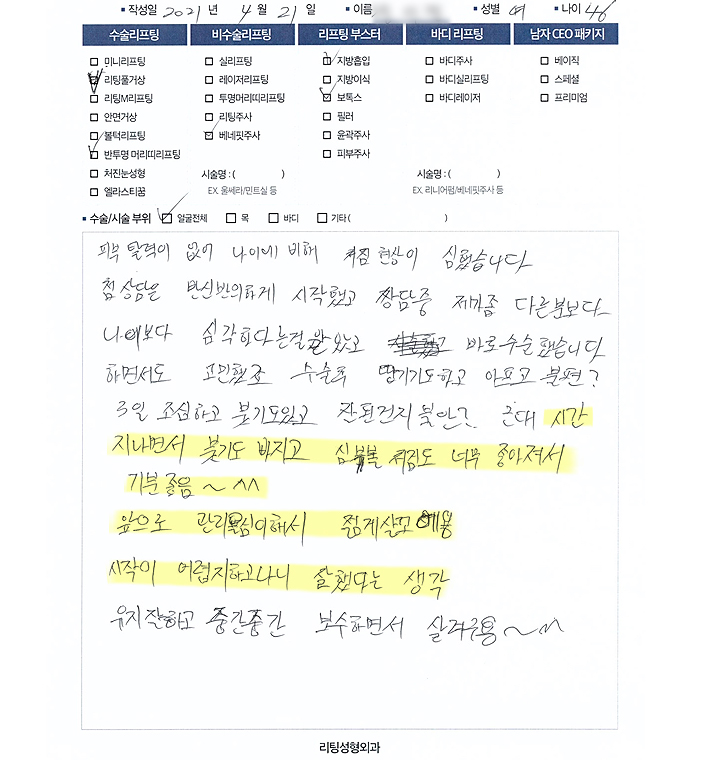 작성일 2021 년 4 월 21 일 이름 성별 여 나이 46
수술리프팅 비수술리프팅 리프팅 부스터 바디 리프팅 남자 CEO 패키지
미니리프팅 실리프팅 지방흡입 바디주사 베이직
리팅풀거상 레이저리프팅 지방이식 바디실리프팅 스페셜
리팅M리프팅 투명머리띠리프팅 보톡스 바디레이저 프리미엄
안면거상 리팅주사 필러
볼턱리프팅 베네핏주사 윤곽주사
반투명 머리띠리프팅 피부주사
처진눈성형 시술명 : ( ) 시술명 : ( )
엘라스티꿈 EX. 울쎄라/민트실 등 EX. 리니어펌/베네핏주사 등
수술/시술 부위 얼굴전체 목 바디 기타 ( )
피부 탈력이 없어 나이에 비해 쳐짐 현상이 심했습니다
첨 상담은 반신반의하게 시작했고 짱담중 제가좀 다른분보다
나이보다 심각하다는걸 알았고 바로수술했습니다
하면서도 고민했죠 수술후 땅기기도하고 아프고 불편?
3일 조심하고 붓기도있고 잔된건지 불안? 근대 시간
지나면서 붓기도 빠지고 심부볼 쳐짐도 너무 좋아져서
기분좋음 ~ ^^
앞으로 관리열심이해서 젊게살고 예용
시작이 어렵지하고나니 잘했다는 생각
유지잘하고 중간중간 보수하면서 살려구용 ~ ^^
리팅성형외과